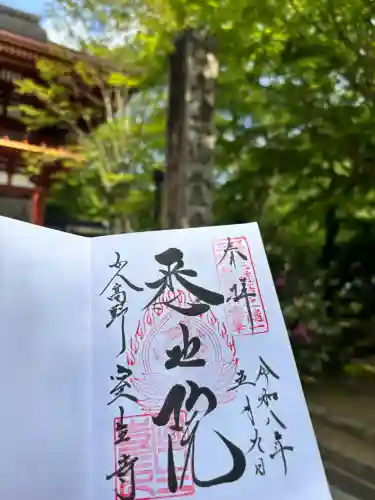 奉拝
令和八年
五月九日
悉地院
女人高野 室生寺